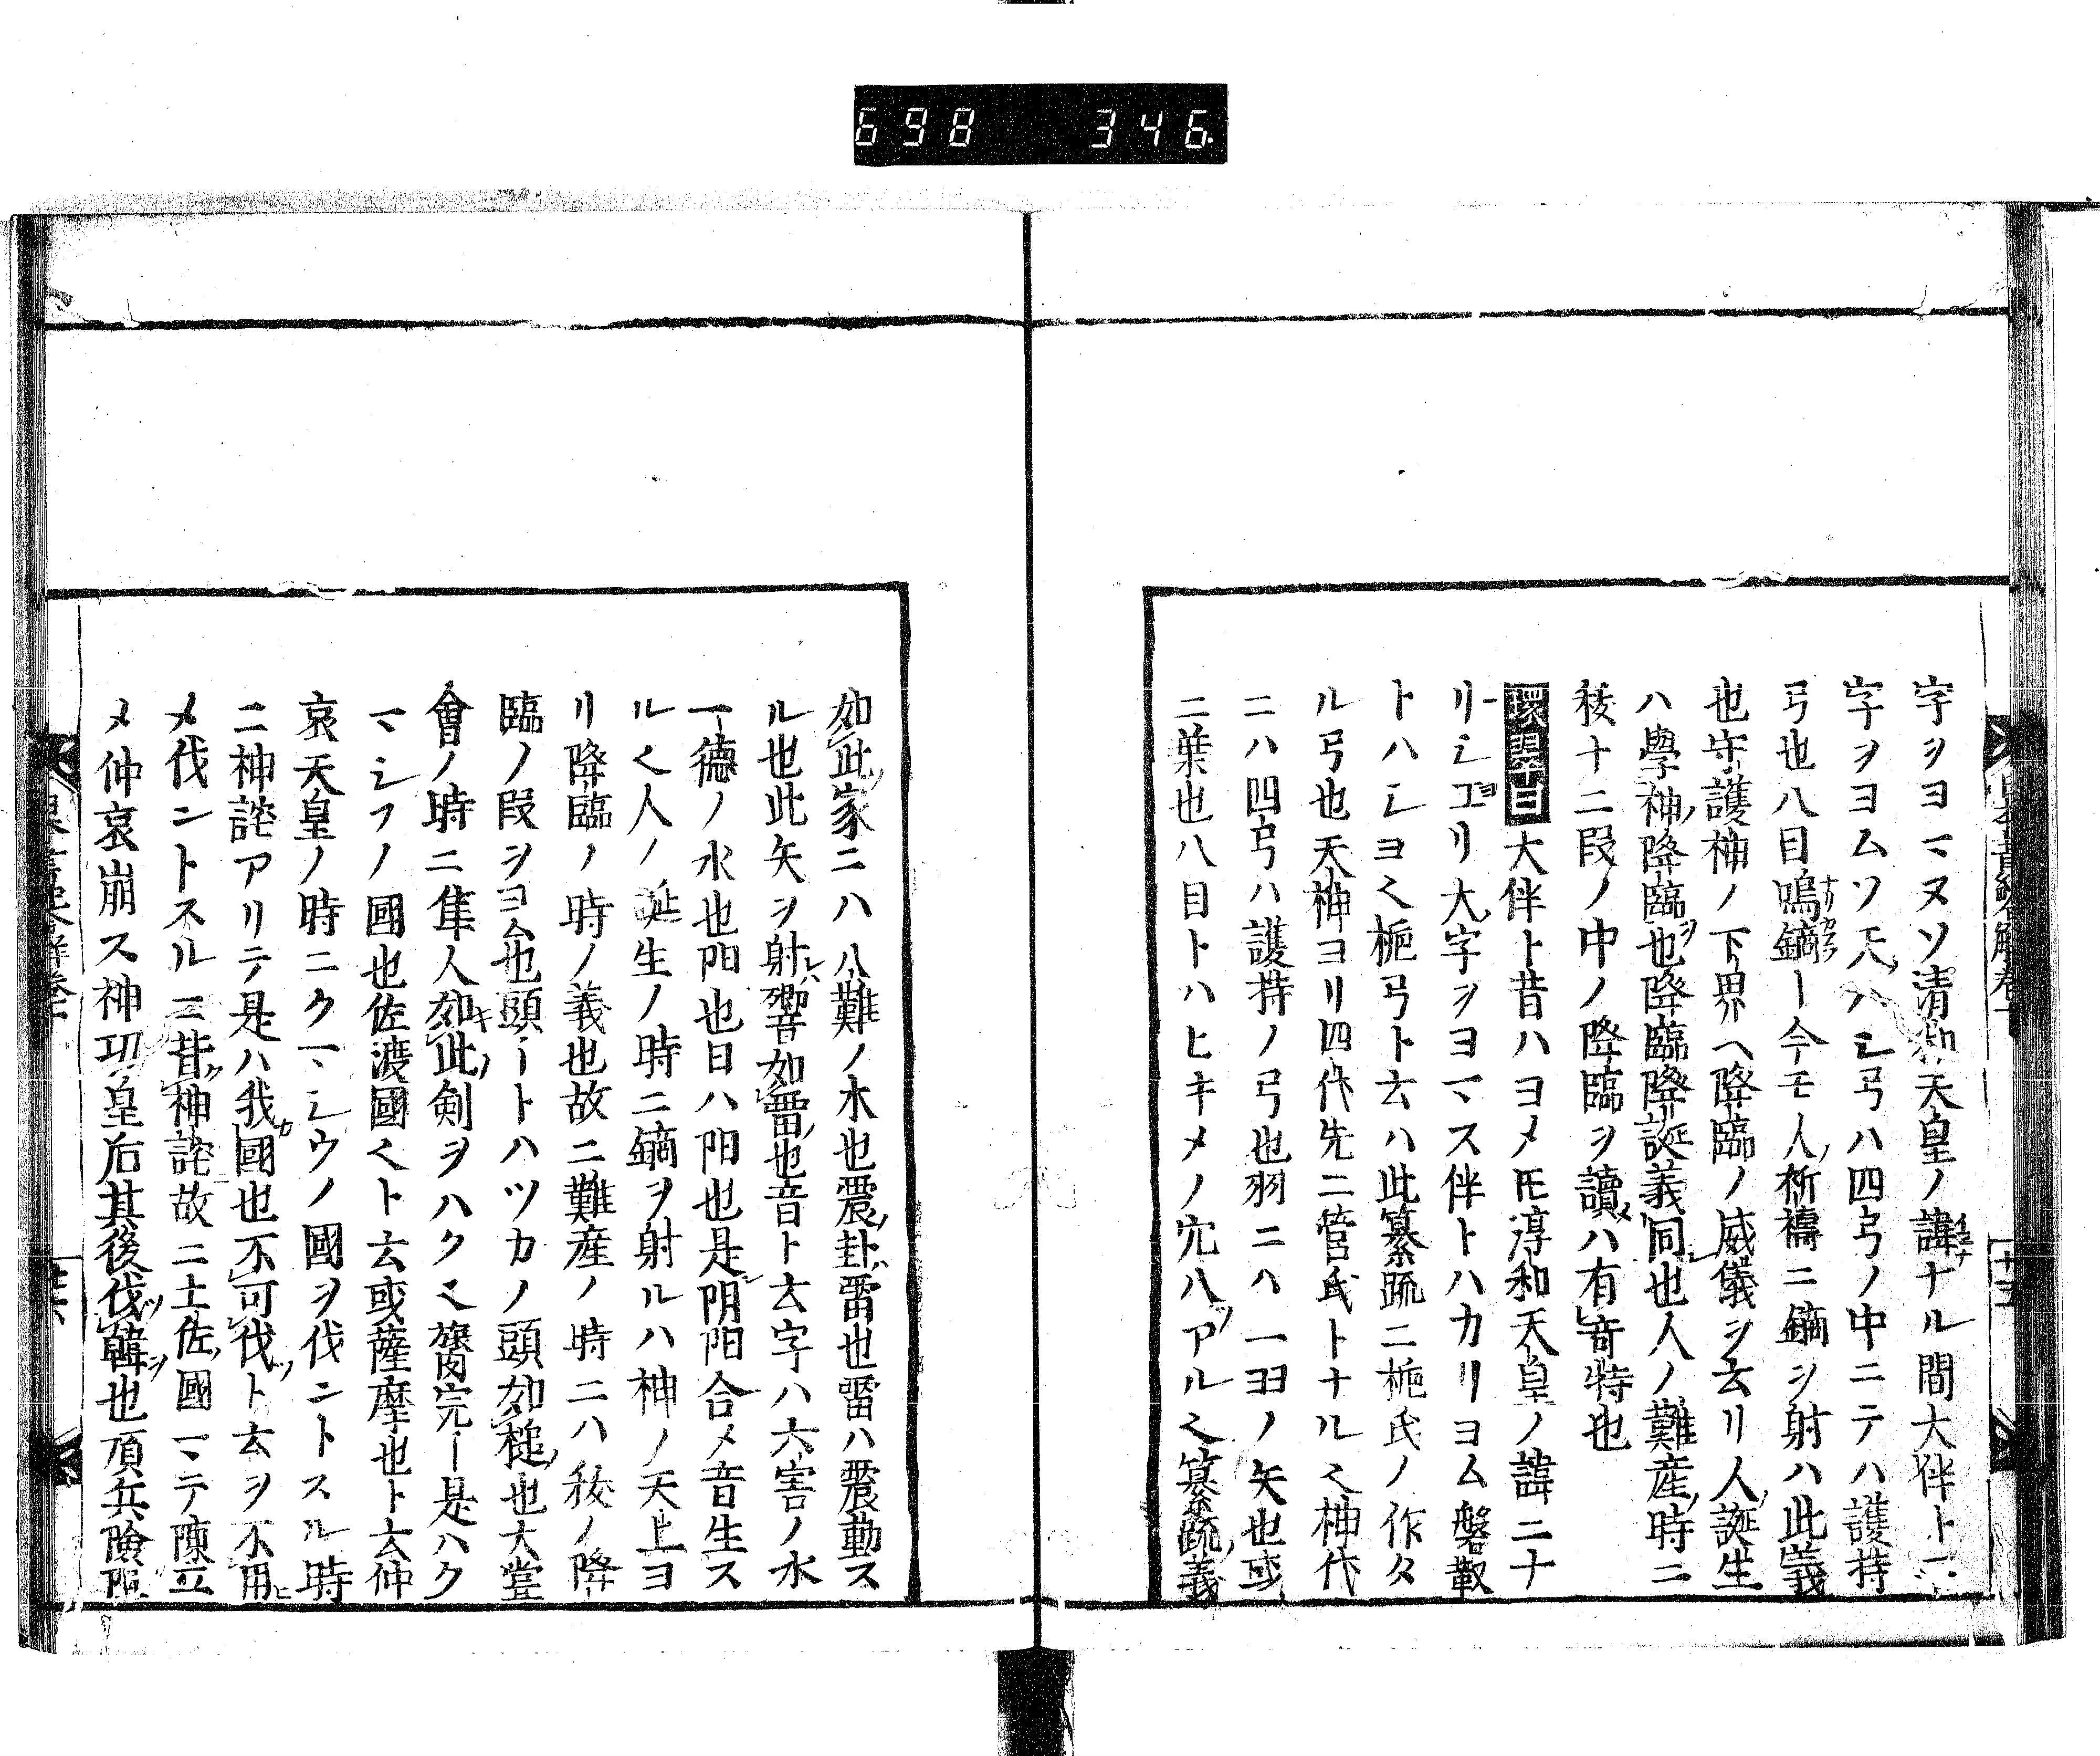 698 346.
字ヲヨマヌソ清和天皇ノ諱ナル間大伴ト
字ヲヨムソ天ノハシ弓ハ四弓ノ中ニテハ護持
弓也八目鳴鏑ー今モ人ノ祈禱ニ鏑ヲ射ハ此義
也守護神ノ下界ヘ降臨ノ威儀ヲ云リ人ノ誕生
ハ學神ノ降臨ヲ也降臨降誕義同也人ノ難産ノ時ニ
秡十二段ノ中ノ降臨ヲ讀メハ有奇特也
環翠曰大伴ト昔ハヨメ𪜈淳和天皇ノ諱ニ十
リシヨリ大ノ字ヲヨマス伴トハカリヨム磐靫
トハシヨく梔弓ト云ハ此纂疏ニ梔氏ノ作タ
ル弓也天神ヨリ四代先ニ管氏トナルく神代
ニハ四弓ハ護持ノ弓也羽ニハ一羽ノ矢也或ハ
二葉也八目トハヒキメノ穴八ツアルく纂疏ノ義
如此ノ家ニハ八難ノ木也震ノ卦ハ雷也雷ハ震動ス
ル也此矢ヲ射レハ響如雷ノ也音ト云字ハ六害ノ水
一德ノ水也阳也日ハ阳也是レ阴阳合メ音生ス
ルく人ノ誕生ノ時ニ鏑ヲ射ルハ神ノ天上ヨ
リ降臨ノ時ノ義也故ニ難産ノ時ニハ秡ノ降
臨ノ段ヲヨム也頭ートハツカノ頭如槌ノ也大甞
會ノ時ニ隼人如キ此ノ剣ヲハクく膂宍ー是ハク
マシフノ國也佐渡國くト云或薩摩也ト云仲
哀天皇ノ時ニクマシウノ國ヲ伐ントスル時
ニ神詫アリテ是ハ我カ國也不可伐ツト云ヲ不用ヒ
メ伐ントスル二昔ク神詫故ニ土佐ノ國マテ陳立
メ仲哀崩ス神功皇后其後伐ツ韓ヲ也頂兵險阻